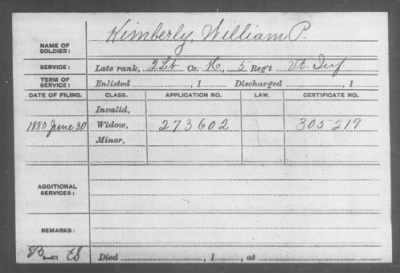 NAME OF SOLDIER: Kimberly, William P.
SERVICE: Late rank, 2 Lt Co. K, 5 Reg't Vt. Inf
TERM OF SERVICE: Enlisted , 1 Discharged , 1
DATE OF FILING. CLASS. APPLICATION NO. LAW. CERTIFICATE NO.
Invalid,
1880 June 30 Widow, 273602 305219
Minor,
ADDITIONAL SERVICES:
REMARKS:
Died , 1 , at